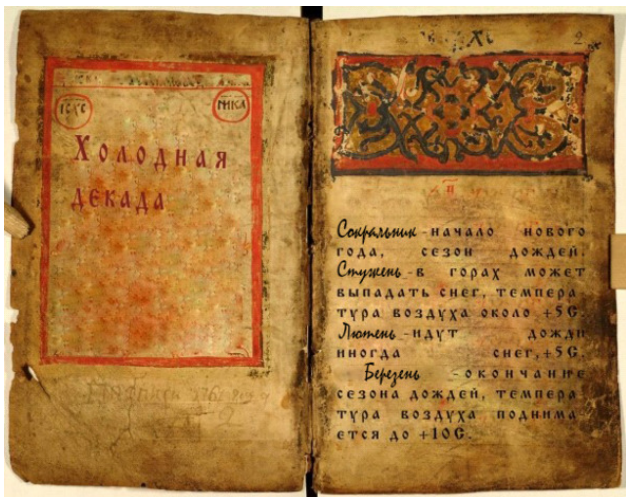 Холодная
декада
Сокральник -начало нового
года, сезон дождей.
Стужень -в горах может
выпадать снег, темпера-
тура воздуха около +5С.
Лютень -идут дожди
иногда снег,+5С.
Березень -окончание
сезона дождей, темпера-
тура воздуха поднима-
ется до +10С.